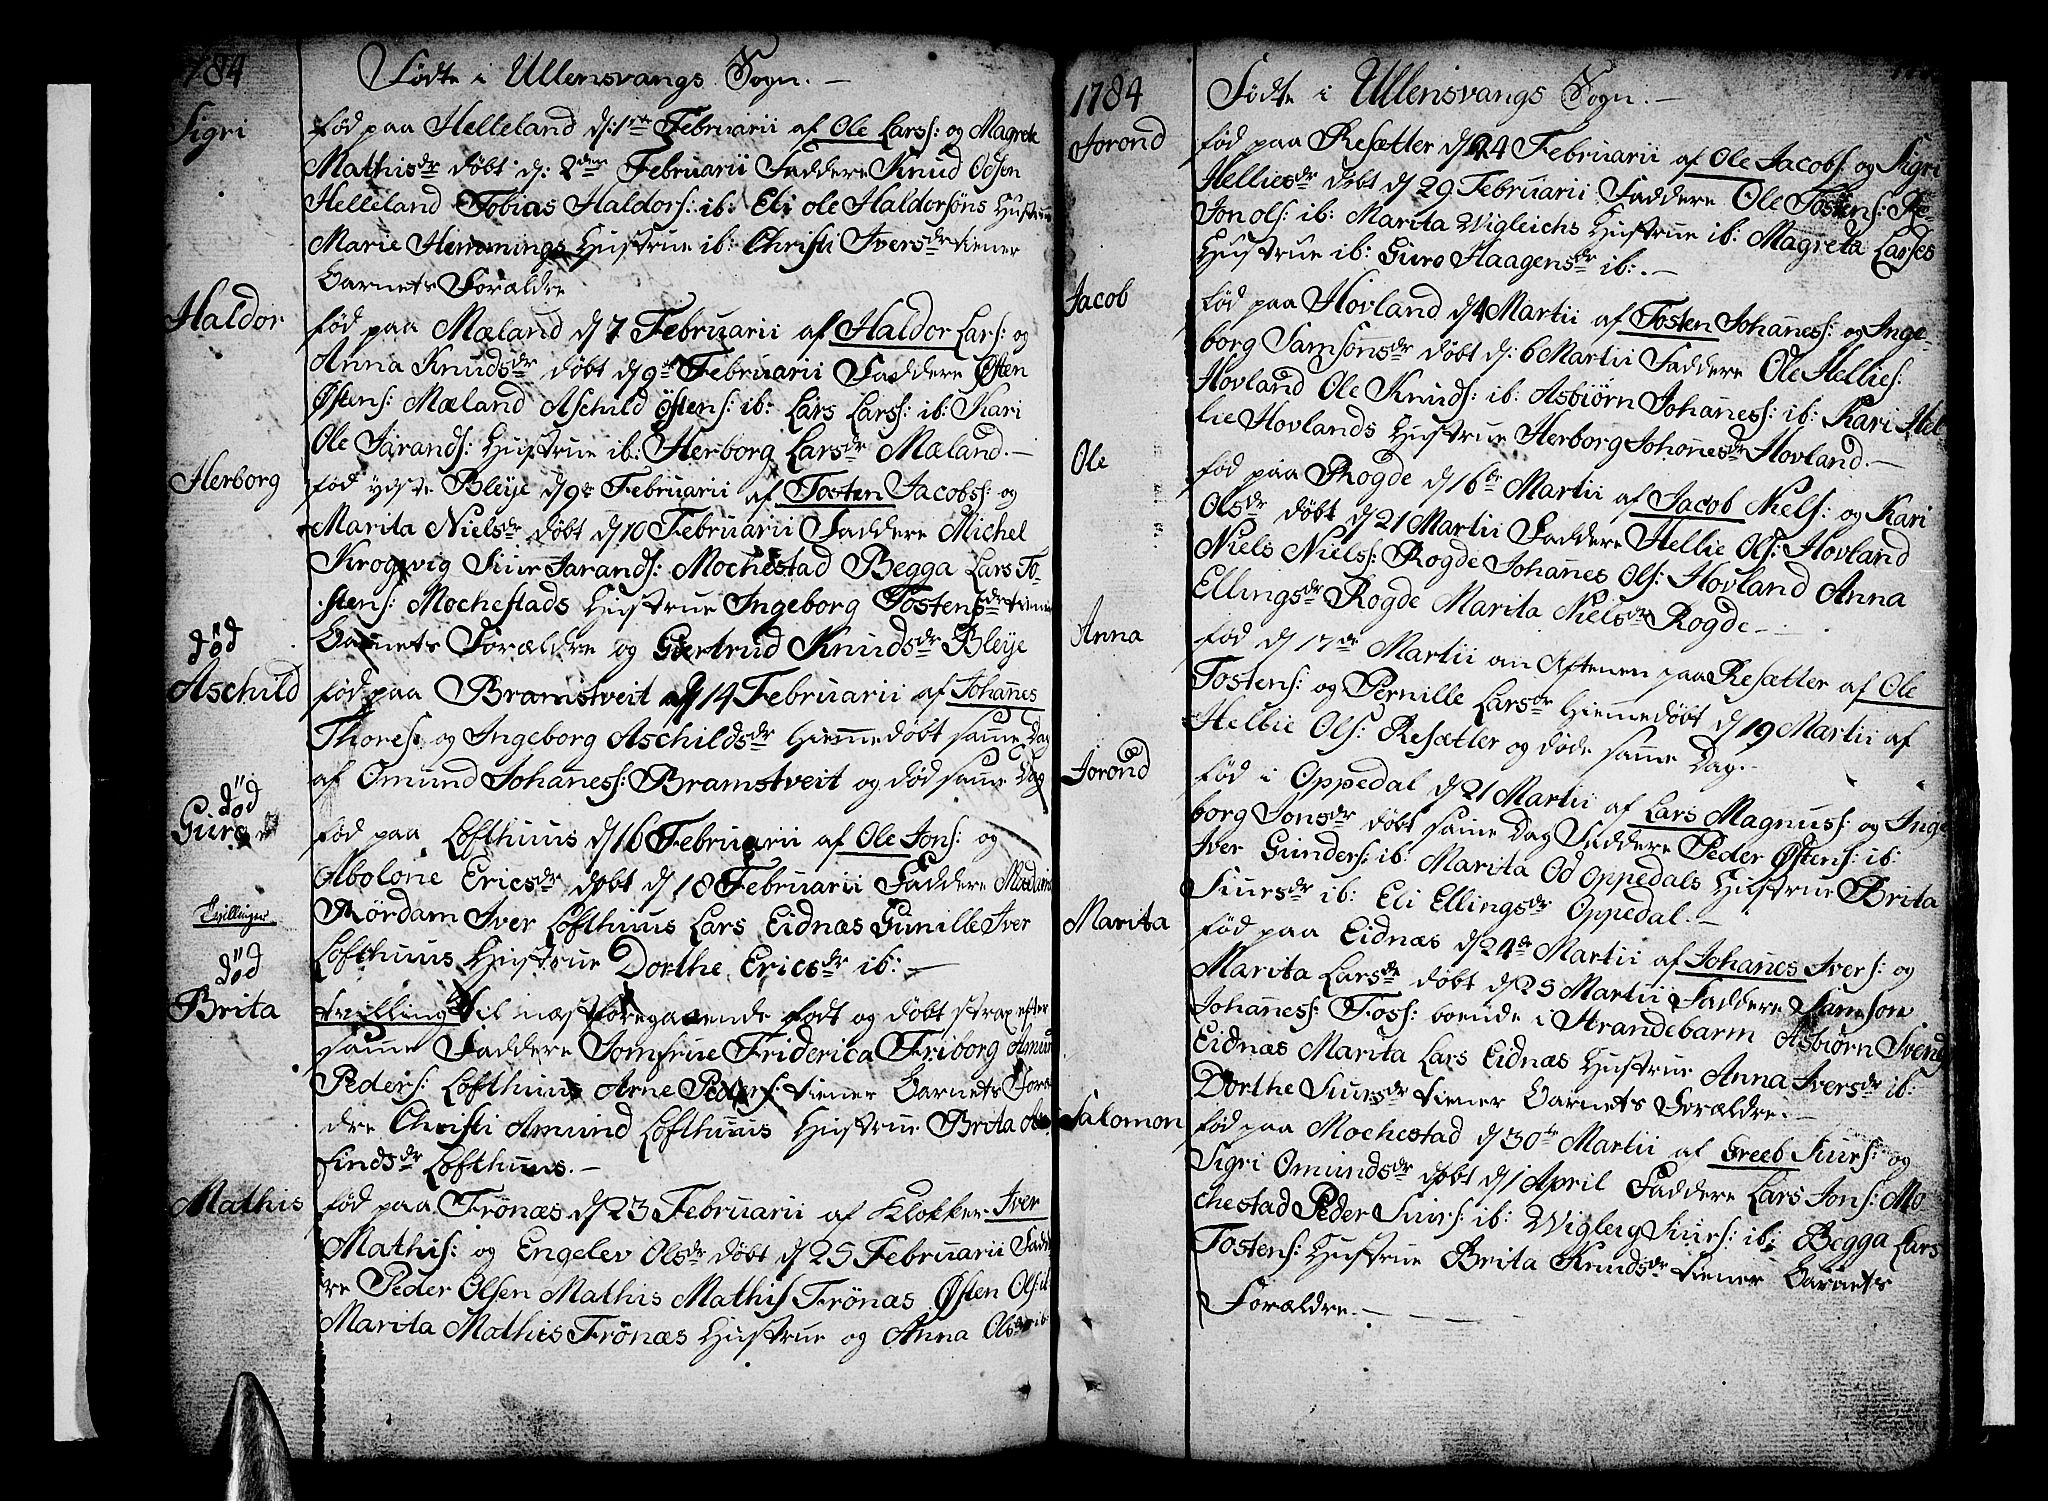 1784
Fødte i Ullensvangs Sogn. –
Sigri
fød paa Helleland d: 1ste Februarii af Ole Lars: og Magrete
Mathisdr døbt d: 2den Februarii Faddere Knud Odsen
Helleland Tobias Haldors: ib: Eli Ole Haldorsöns Hustrue
Marie Hemmings Hustrue ib: Christi Iversdr tiener
Barnets Forældre
Haldor
fød paa Mæland d 7 Februarii af Haldor Lars: og
Anna Knudsdr døbt d 9de Februarii Faddere Østen
Østens: Mæland Aschild Østens: ib: Lars Larss: ib: Kari
Ole Jarands: Hustrue ib: Herborg Larsdr Mæland. –
Herborg
fød ydste Bleye d 9de Februarii af Tosten Jacobs: og
Marita Nielsdr døbt d 10 Februarii Faddere Michel
Krogevig Siur Jarands: Mochestad Begga Lars To-
stens: Mochestads Hustrue Ingeborg Tostensdr tiener
Barnets Forældre og Giertrud Knudsdr Bleye
død
Aschild
fød paa Bramstveit d 14 Februarii af Johannes
Thores: og Ingeborg Aschildsdr hiemmedøbt samme Dag
af Omund Johaness: Bramstveit og død samme Dag
død
Guro
fød paa Lofthuus d 16 Februarii af Ole Jons: og
Abolone Ericsdr døbt d 18 Februarii Faddere Madame
Mördam Iver Lofthuus Lars Eidnæs Gunille Iver
Lofthuus Hustrue Dorthe Ericsdr ib: –
Tvillinger
død
Brita
tvilling til næstforegaaende født og døbt strax efter
samme Faddere Jomfrue Friderica Friborg Amund
Peders: Lofthuus Arne Peders: tiener Barnets Foræl
dre Christi Amund Lofthuus Hustrue Brita
findsdr Lofthuus. –
Mathis
fød paa Frönæs d 23 Februarii af Klokker Iver
Mathis: og Engelev Olsdr døbt d 25 Februarii Fadde
re Peder Olsen Mathis Mathis Frönæs Østen Ols: ib
Marita Mathis Frönæs Hustrue og Anna Olsdr ib:
1784
Fødte i Ullensvangs Sogn. –
Jorond
fød paa Resætter d 24 Februarii af Ole Jacobs: og Sigri
Helliesdr døbt d 29 Februarii Faddere Ole Tostens: Re-
Jon Ols: ib: Marita Wigleichs Hustrue ib: Magreta Larses
Hustrue ib: Guro Haagensdr ib: –
Jacob
fød paa Hovland d 4 Martii af Tosten Johaness: og Inge-
borg Samsönsdr døbt d: 6 Martii Faddere Ole Hellies:
Hovland Ole Knuds: ib: Asbiörn Johaness: ib: Kari Hel
lie Hovlands Hustrue Herborg Johannesdr Hovland. –
Ole
fød paa Rogde d 16de Martii af Jacob Niels: og Kari
Olsdr døbt d 21 Martii Faddere Hellie Ols: Hovland
Niels Niels: Rogde Johannes Ols: Hovland Anna
Ellingsdr Rogde Marita Nielsdr Rogde –
Anna
fød d 17de Martii om Aftenen paa Resætter af Ole
Tostens: og Pernille Larsdr hiemmedøbt d 19 Martii af
Helbie Ols: Resætter og døde samme Dag. –
Jorond
fød i Oppedal d 21 Martii af Lars Magnus: og Inge
borg Jonsdr døbt samme Dag Faddere Peder Østens: ib:
Iver Gunders: ib: Marita Od Oppedals Hustrue Brita
Siursdr ib: Eli Ellingsdr Oppedal. –
Marita
fød paa Eidnæs d 24de Martii af Johannes Ivers: og
Marita Larsdr døbt d 25 Martii Faddere Samson
Johanness: Foss: boende i Strandebarm Asbiørn Svends
Eidnæs Marita Lars Eidnæs Hustrue Anna Iversdr ib:
Dorthe Siursdr tiener Barnets Forældre. –
Salomon
fød paa Mochestad d 30te Martii af Greeb Siurs: og
Sigri Omundsdr døbt d 1 April Faddere Lars Jons: Mo
chestad Peder Siurs: ib: Wigleig Siurs: ib: Begga Lars
Tostens: Hustrue Brita Knudsdr tiener Barnets
Forældre. –